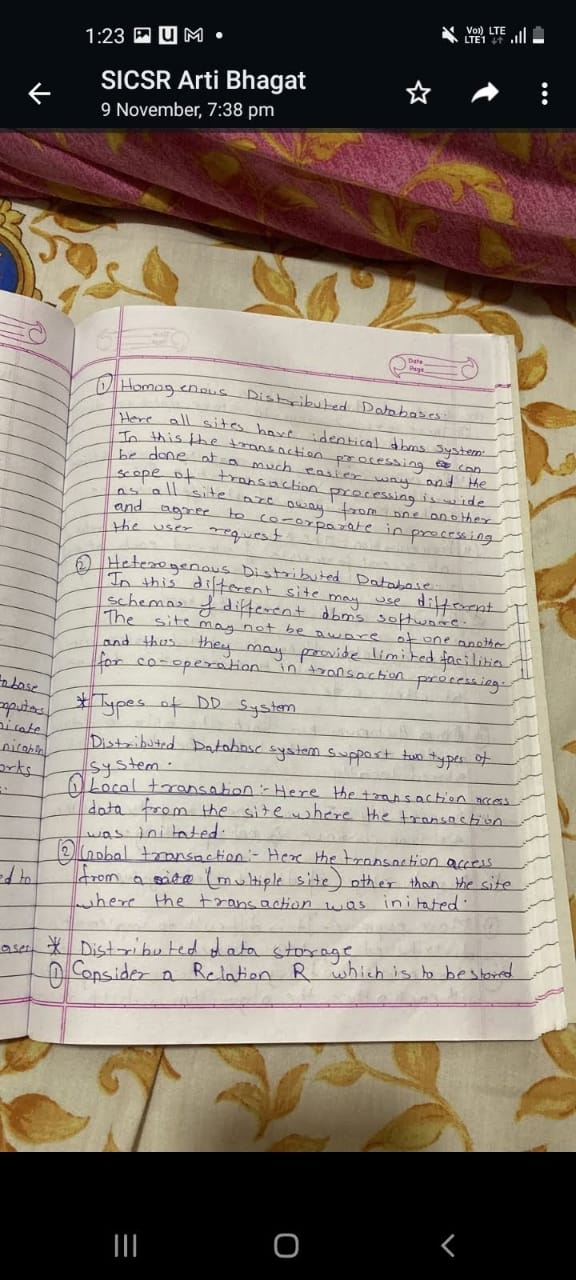 1:23
Vo) LTE
LTE1
SICSR Arti Bhagat
9 November, 7:38 pm
Date
Page
① Homogenous Distributed Databases:
Here all sites have identical dbms system.
In this the transaction processing can
be done at a much easier way and the
scope of transaction processing is wide
as all site are away from one another
and agree to co-orparate in processing
the user request.
② Heterogenous Distributed Database
In this different site may use different
schemas & different dbms software.
The site may not be aware of one another
and thus they may provide limited facilities
for co-operation in transaction processing.
* Types of DD System
Distributed Database system support two types of
system.
① Local transation :- Here the transaction access
data from the site where the transaction
was initated.
② Gobal transaction :- Here the transaction access
from a site (multiple site) other than the site
where the transaction was initated.
* Distributed data storage
① Consider a Relation R which is to be stored